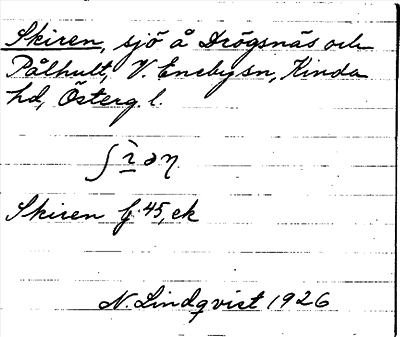 Skiren, sjö å Drögsnäs och
Pålhult, V. Enebysn, Kinda
hd, Österg. l.
Skiren f. 45, ek
N. Lindqvist 1926